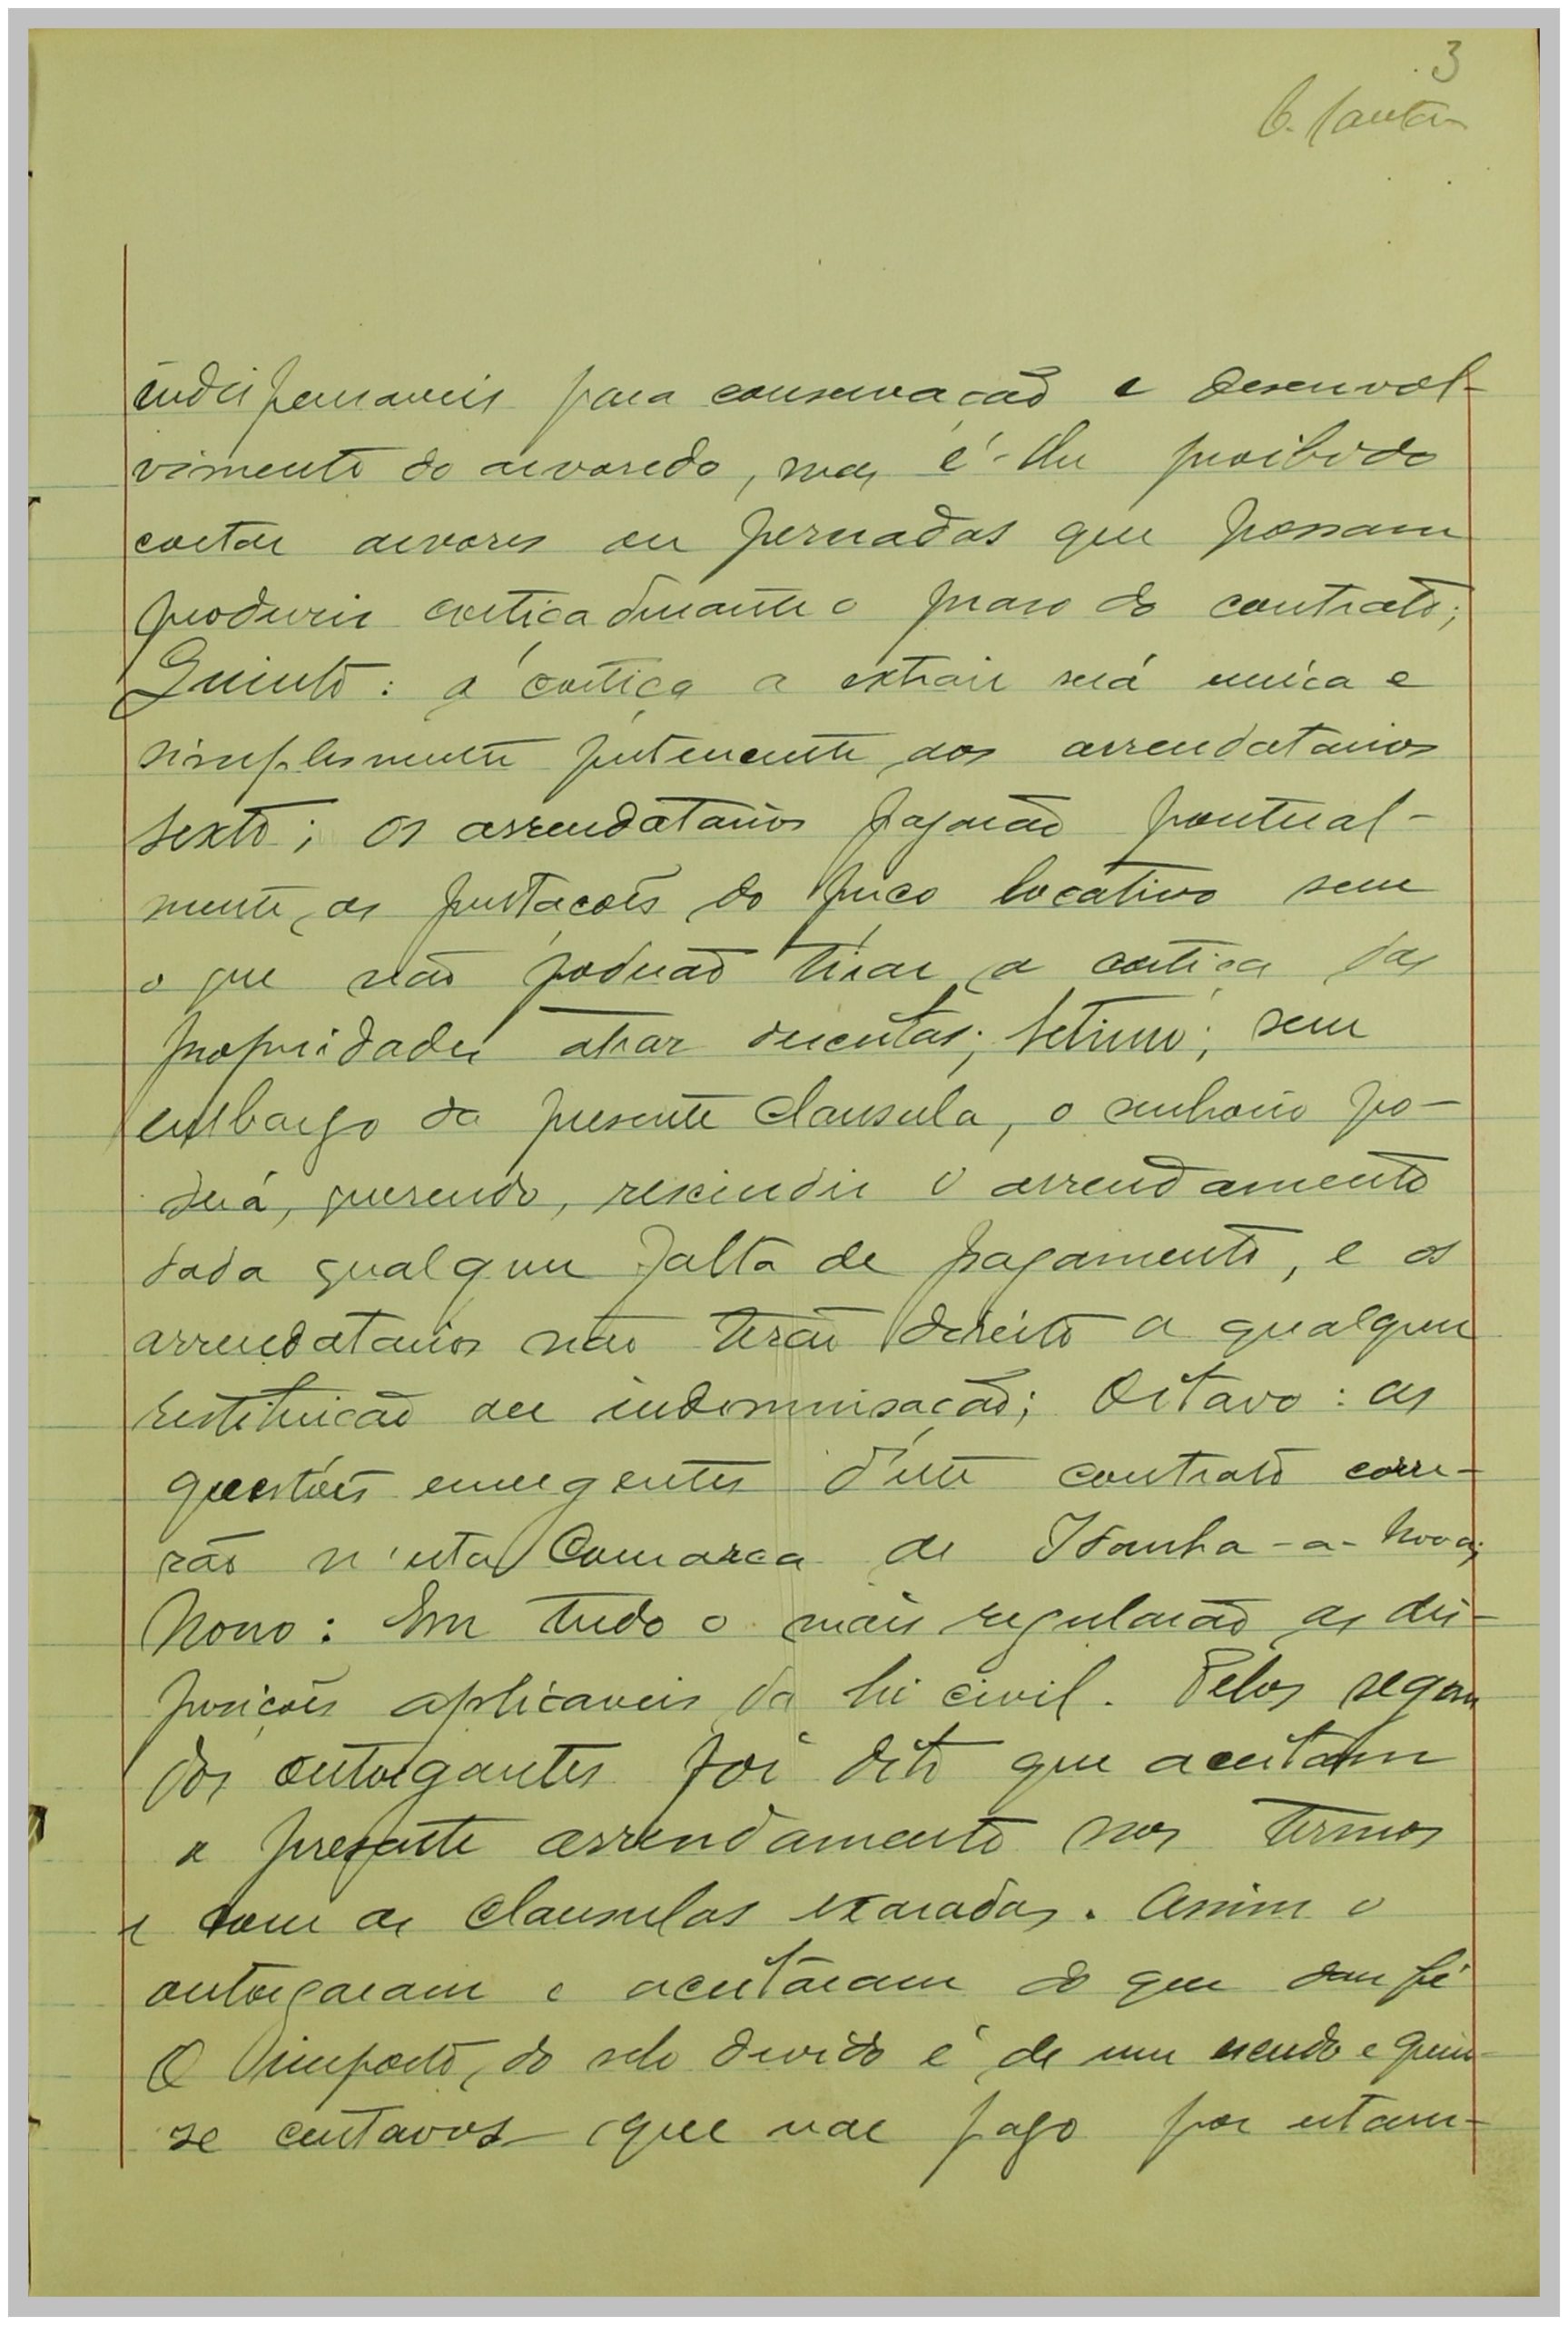 3
indispensaveis para conservação e desenvol-
vimento do arvoredo, mas é-lhe proibido
cortar arvores ou pernadas que possam
produzir cortiça durante o praso do contrato;
Quinto: a cortiça a extrair será unica e
simplesmente pertencente aos arrendatarios
sexto; os arrendatarios pagarão pontual-
mente as prestações do preço locativo sem
o que não poderão tirar a cortiça das
propriedades atraz descritas; setimo; sem
embargo da presente clausula, o senhorio po-
derá, querendo, rescindir o arrendamento
dada qualquer falta de pagamento, e os
arrendatarios não terão direito a qualquer
restituicão ou indemnisacão; Oitavo: as
questões emergentes d'este contrato corre-
rão n'esta Comarca de Idanha-a-Nova;
Nono: Em tudo o mais regularão as dis-
posicões aplicaveis da lei civil. Pelos segun
dos outorgantes foi dito que aceitam
o presente arrendamento nos termos
e com as clausulas exaradas. Assim o
outorgaram e aceitaram do que dou fé
O imposto do selo devido é de um escudo e quin-
se centavos que vae pago por estam-